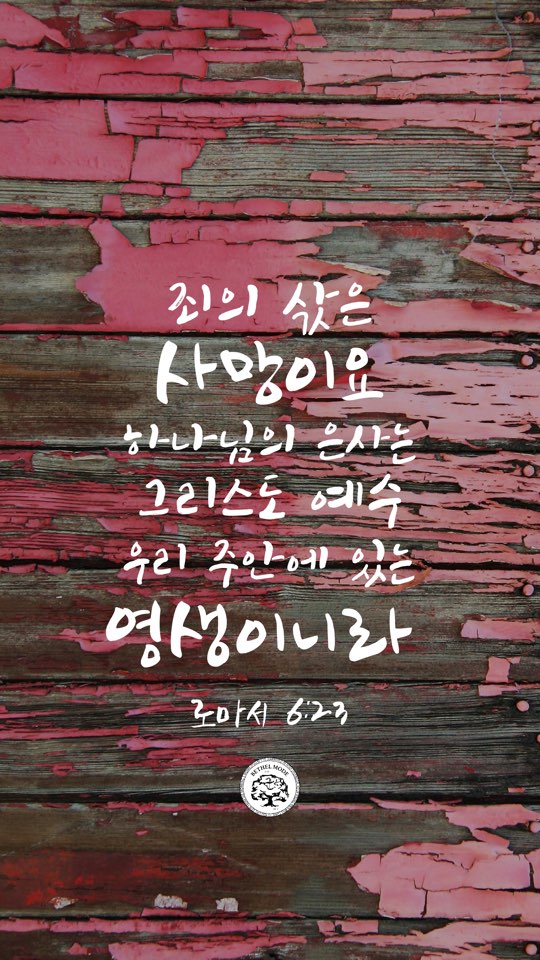 죄의 삯은
사망이요
하나님의 은사는
그리스도 예수
우리 주안에 있는
영생이니라
로마서 6:23
BETHEL MODE